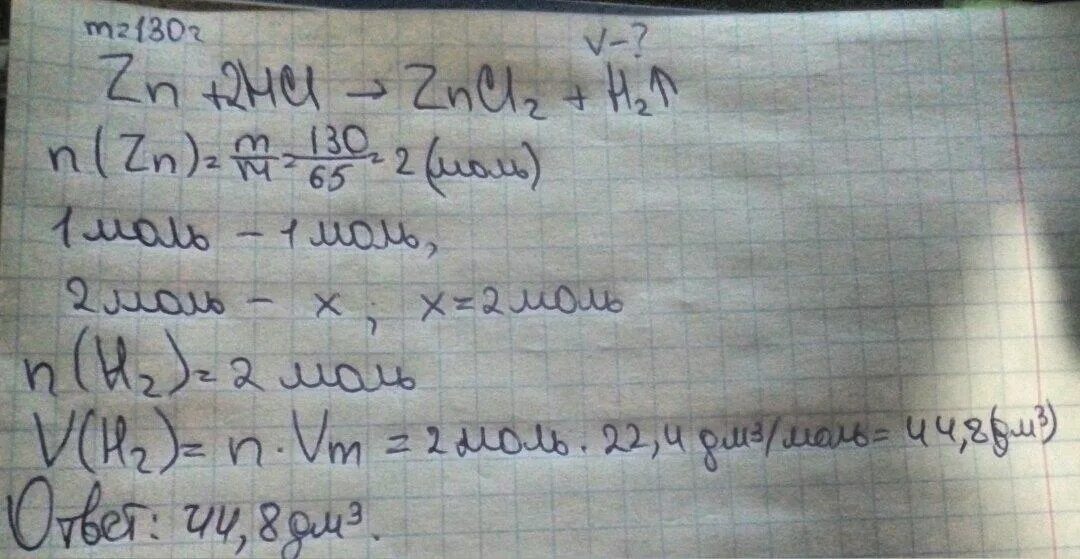 m=130г
V-?
Zn + 2HCl → ZnCl₂ + H₂↑
n(Zn) = m/M = 130/65 = 2 (моль)
1 моль - 1 моль,
2 моль - x ; x = 2 моль
n(H₂) = 2 моль
V(H₂) = n · Vm = 2 моль · 22,4 дм³/моль = 44,8 (дм³)
Ответ: 44,8 дм³.